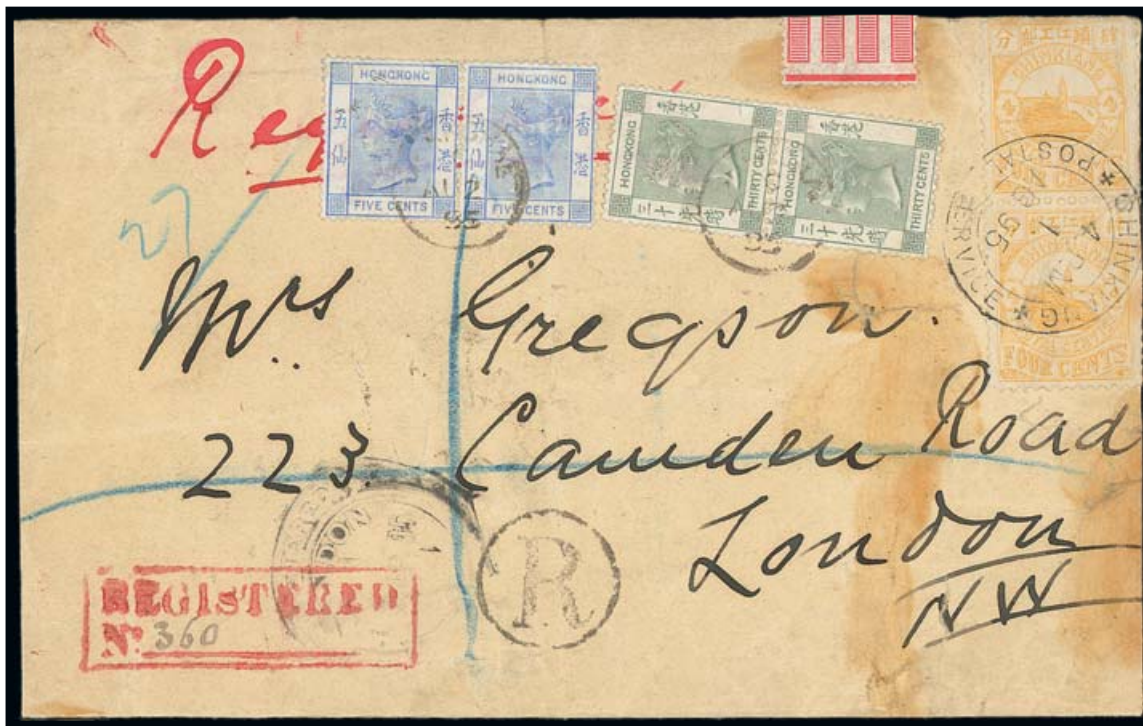 Reg
27
HONGKONG
五仙
香港
FIVE CENTS
HONGKONG
五仙
香港
FIVE CENTS
香港
HONGKONG
THIRTY CENTS
香港
HONGKONG
THIRTY CENTS
CHINKIANG
FOUR CENTS
CHINKIANG
POSTAL SERVICE
95
Mrs Gregson.
223. Camden Road
London
NW
R
REGISTERED
No. 360